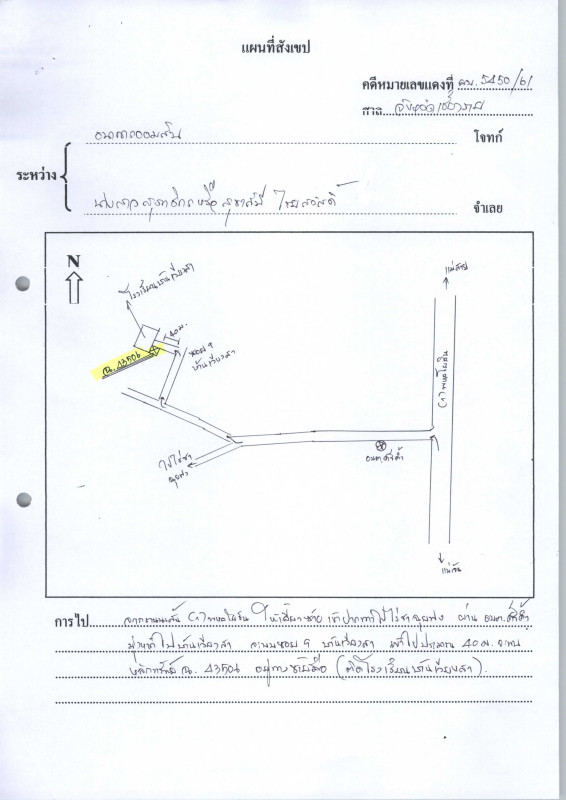 แผนที่สังเขป
คดีหมายเลขแดงที่ ผบ. 5450/61
ศาล จังหวัดเชียงราย
ธนาคารออมสิน โจทก์
ระหว่าง
นางสาว หรือ ไชยสวัสดิ์ จำเลย
N
แม่สาย
โรงเรียนบ้านเวียงสา
40 ม.
ฉ. 13506
ซอย 9
บ้านเวียงสา
(1) พหลโยธิน
อบต.
ไปไร่ชา
ฉุยฟง
การไป จากถนน (1) พหลโยธิน ให้เลี้ยวซ้าย เข้าปากทางไปไร่ชาฉุยฟง ผ่าน อบต.
มุ่งหน้าไปบ้านเวียงสา ซอย 9 บ้านเวียงสา เข้าไปประมาณ 40 ม. จะพบ
หลักทรัพย์ ฉ. 13506 อยู่ทางซ้ายมือ (ติดโรงเรียนบ้านเวียงสา).